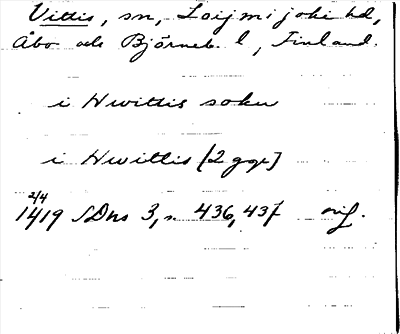 Vittis, sn, Loijmijoki hd,
Åbo och Björneb. l, Finland.
i Hwittis sokn
i Hwittis [2 ggr]
2/4
1419 SDns 3, s. 436, 437 orig.